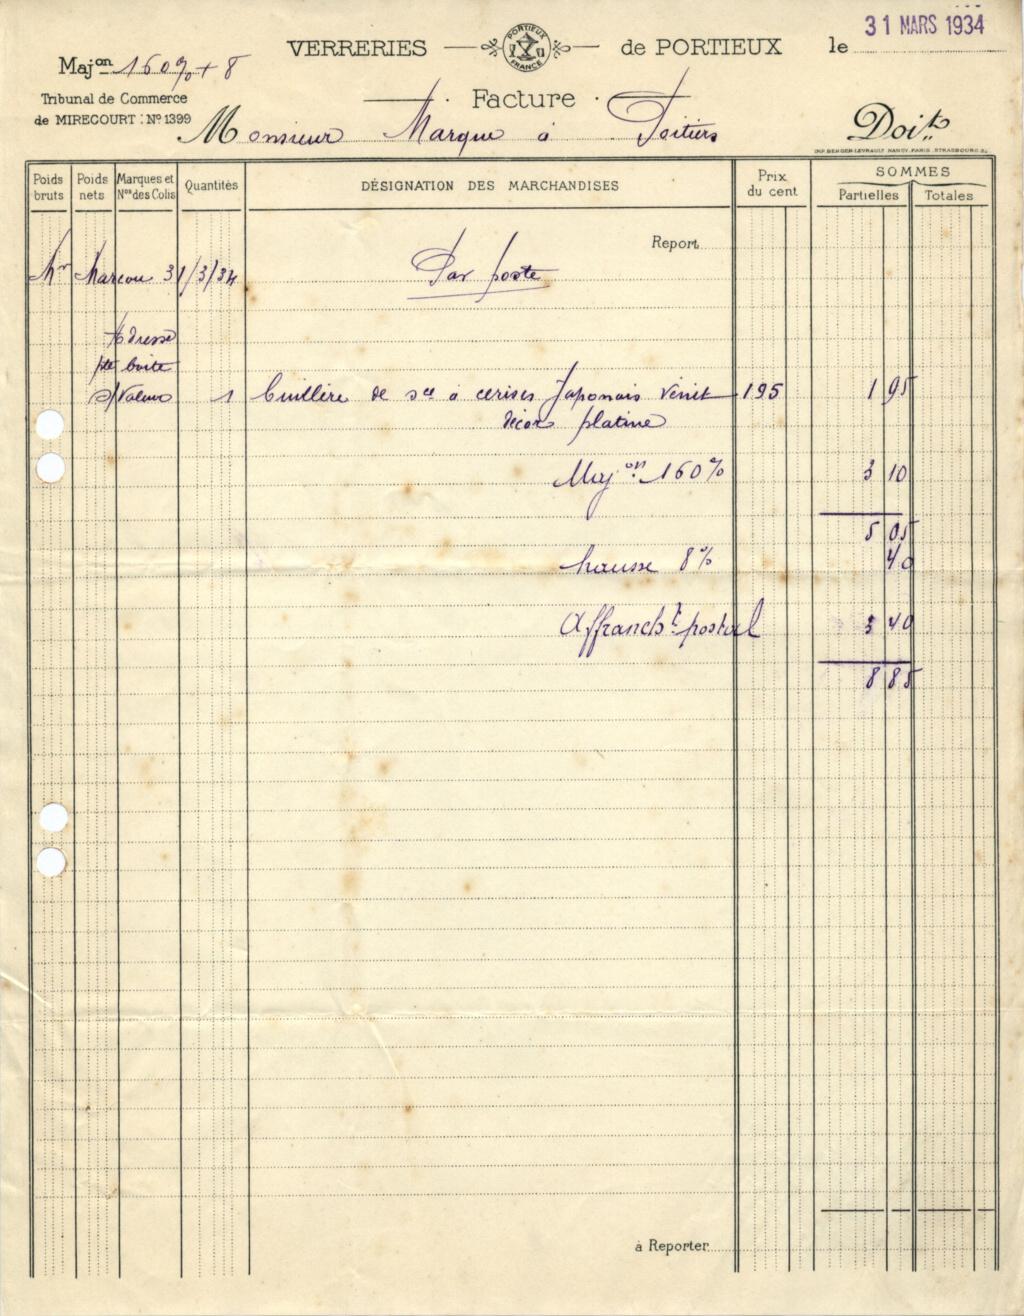 31 MARS 1934
VERRERIES PORTIEUX FRANCE de PORTIEUX le
Majon 160% + 8
Tribunal de Commerce
de MIRECOURT : No 1399
Facture
Monsieur Marque à Poitiers Doit
IMP. BERGER-LEVRAULT NANCY-PARIS-STRASBOURG
Poids bruts Poids nets Marques et Nos des Colis Quantités DÉSIGNATION DES MARCHANDISES Prix du cent SOMMES
Partielles Totales
Report
Mr Marcou 31/3/34 Par poste
Adresse
pte boite
s/Valeur 1 Cuillère de sce à cerises Japonais Vénit 195 1 95
décor platine
Majon 160% 3 10
5 05
hausse 8% 40
Affrancht postal 3 40
8 85
à Reporter